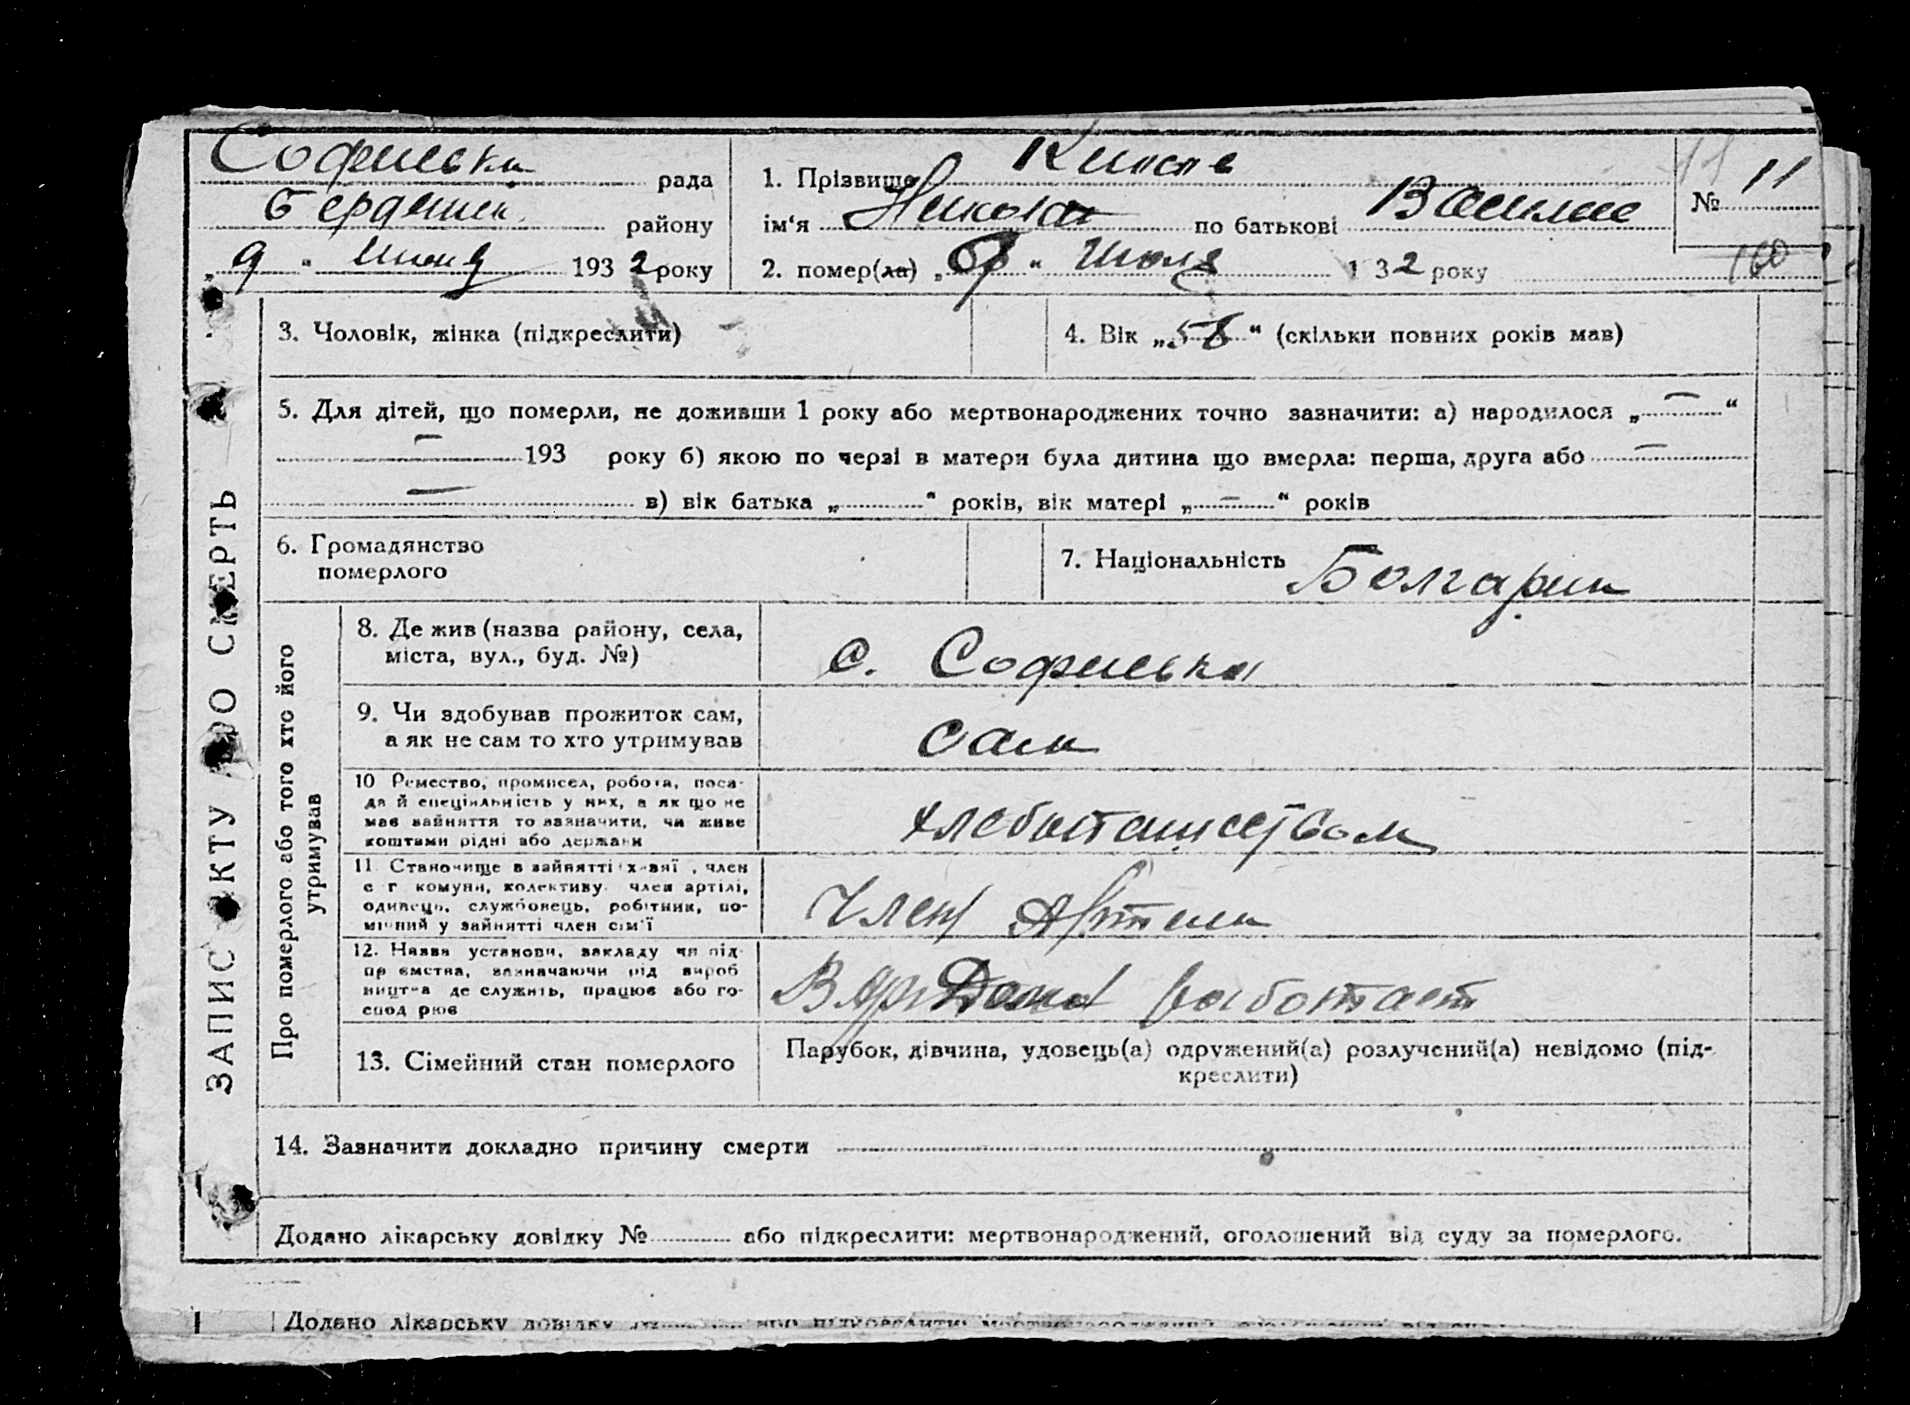 Софиевка рада
Бердянск. району
„ 9 " Июля 193 2 року
1. Прізвище
ім'я Николай по батькові Василие
2. помер(ла) „ " Июля 1 32 року
11
№ 11
160
ЗАПИС АКТУ ПРО СМЕРТЬ
3. Чоловік, жінка (підкреслити)
4. Вік „ 58 " (скільки повних років мав)
5. Для дітей, що померли, не доживши 1 року або мертвонароджених точно зазначити: а) народилося „ — "
— 193 року б) якою по черзі в матери була дитина що вмерла: перша, друга або —
— в) вік батька „ " років, вік матері „ — " років
6. Громадянство
померлого
7. Національність Болгарин
Про померлого або того хто його
утримував
8. Де жив (назва району, села,
міста, вул., буд. №)
с. Софиевка
9. Чи здобував прожиток сам,
а як не сам то хто утримував
сам
10 Ремество, промисел, робота, поса-
да й спеціяльність у них, а як що не
має зайняття то зазначити, чи живе
коштами рідні або держави
хлебопашеством
11 Становище в зайнятті х-вяї , член
с г комуни, колективу член артілі,
одинець, службовець, робітник, по-
мічний у зайнятті член сім'ї
Член Артели
12. Назва установи, закладу чи під-
пр ємства, зазначаючи рід вироб
ництва де служить, працює або го-
спод рює
работает
13. Сімейний стан померлого
Парубок, дівчина, удовець(а) одружений(а) розлучений(а) невідомо (під-
креслити)
14. Зазначити докладно причину смерти
Додано лікарську довідку № або підкреслити: мертвонароджений, оголошений від суду за померлого.
Додано лікарську довідку